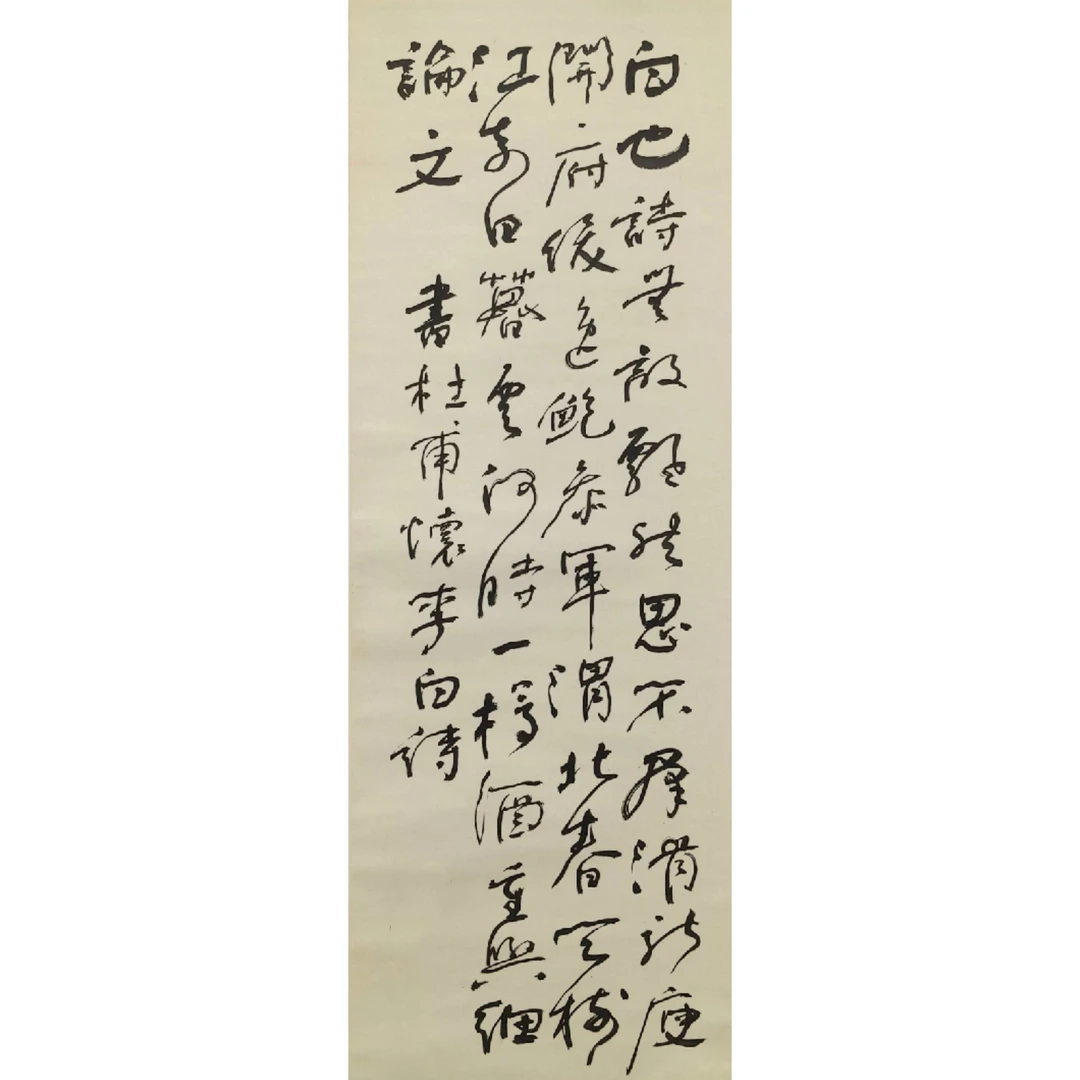 白也詩無敵飄然思不羣清新庾
開府俊逸鮑參軍渭北春天樹
江東日暮雲何時一樽酒重與細
論文 書杜甫懷李白詩